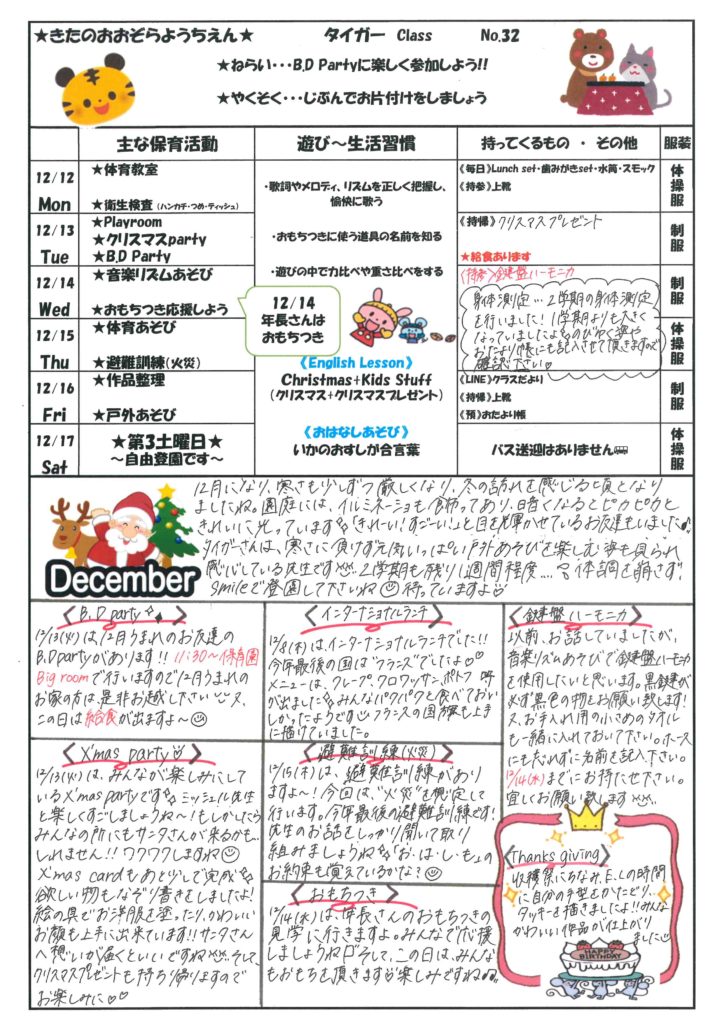 ★きたのおおぞらようちえん★ タイガー Class No.32
★ねらい・・・B.D Partyに楽しく参加しよう!!
★やくそく・・・じぶんでお片付けをしましょう
主な保育活動 遊び～生活習慣 持ってくるもの ・ その他 服装
12/12 Mon
★体育教室
★衛生検査（ハンカチ・つめ・ティッシュ）
12/13 Tue
★Playroom
★クリスマスparty
★B.D Party
12/14 Wed
★音楽リズムあそび
★おもちつき応援しよう
12/15 Thu
★体育あそび
★避難訓練(火災)
12/16 Fri
★作品整理
★戸外あそび
12/17 Sat
★第3土曜日★
～自由登園です～
・歌詞やメロディ、リズムを正しく把握し、
愉快に歌う
・おもちつきに使う道具の名前を知る
・遊びの中で力比べや重さ比べをする
12/14
年長さんは
おもちつき
《English Lesson》
Christmas+Kids Stuff
（クリスマス+クリスマスプレゼント）
《おはなしあそび》
いかのおすしが合言葉
《毎日》Lunch set・歯みがきset・水筒・スモック
《持参》上靴
体操服
《持帰》クリスマスプレゼント
★給食あります
制服
《持参》鍵盤ハーモニカ
身体測定…2学期の身体測定
を行いました！1学期よりも大きく
なっていましたよ
おたより帳にも記入させて頂きますので
確認下さい
制服
体操服
《LINE》クラスだより
《持帰》上靴
《預》おたより帳
制服
バス送迎はありません
体操服
12月になり、寒さも少しずつ厳しくなり、冬の訪れを感じる頃となり
ましたね。園庭には、イルミネーションも飾ってあり、暗くなるとピカピカと
きれいに光っています。「きれーい！すごーい！」と目を輝かせているお友達もいました♪
タイガーさんは、寒さに負けず元気いっぱい戸外あそびを楽しむ姿も見られ
感心している先生です。2学期も残り1週間程度…。体調を崩さず
Smileで登園して下さいね 待っていますよ
December
《B.D party》
12/13(火)は12月うまれのお友達の
B.D partyがあります!! 11:30～保育園
Big roomで行いますので12月うまれの
お家の方は、是非お越し下さい 又、
この日は給食が出ますよ～
《X'mas party》
12/13(火)は、みんなが楽しみにして
いるX'mas partyです ミッシェル先生
と楽しくすごしましょうね～！もしかしたら
みんなの所にもサンタさんが来るかも…
しれません!! ワクワクしますね
X'mas cardもあと少しで完成
欲しい物もなぞり書きをしましたよ！
絵の具でお洋服を塗ったり、かわいい
お顔も上手に出来ています!! サンタさん
へ想いが届くといいですね そして、
クリスマスプレゼントも持ち帰りますので
お楽しみに
《インターナショナルランチ》
12/8(木)は、インターナショナルランチでした!!
今年最後の国は"フランス"でしたよ
メニューは、クレープ、クロワッサン、ポトフ 等
が出ました みんなパクパクと食べておい
しかったようです フランスの国旗も上手
に描けていました。
《避難訓練(火災)》
12/15(木)は、避難訓練があり
ますよ～！今回は、"火災"を想定して
行います。今年最後の避難訓練です！
先生のお話をしっかり聞いて取り
組みましょうね 「お・は・し・も」の
お約束も覚えているかな？
《おもちつき》
12/14(水)は、年長さんのおもちつきの
見学に行きますよ。みんなで応援
しましょうね そして、この日は、みんな
もおもちを頂きます 楽しみですね
《鍵盤ハーモニカ》
以前、お話していましたが、
音楽リズムあそびで鍵盤ハーモニカ
を使用したいと思います。黒鍵盤が
必ず黒色の物とお願い致します！
又、お手入れ用の小さめのタオル
も一緒に入れておいて下さい。ホース
にも忘れずにお名前を記入下さい。
12/14(水)までにお持たせ下さい。
宜しくお願い致します
《Thanks giving》
収穫祭にちなみ、E.Lの時間
に自分の手型をかたどり、
ターキーを描きましたよ!! みんな
かわいい作品が仕上がり
ました
HAPPY BIRTHDAY